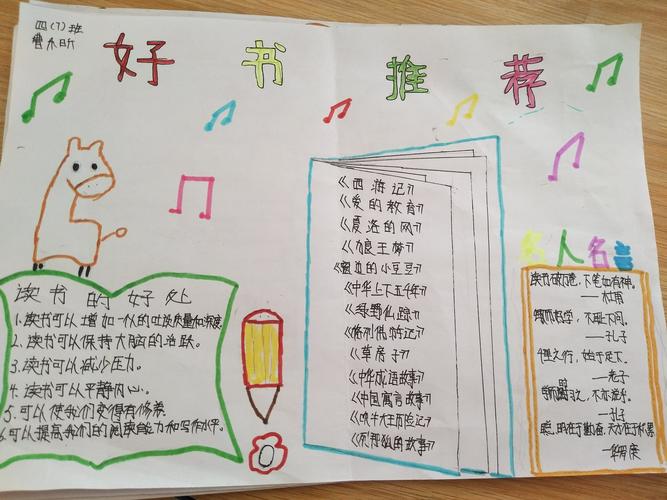 四(7)班
曹木昕
好书推荐
《西游记》
《爱的教育》
《夏洛的网》
《狼王梦》
《窗边的小豆豆》
《中华上下五千年》
《绿野仙踪》
《格列佛游记》
《草房子》
《中华成语故事》
《中国寓言故事》
《吹牛大王历险记》
《列那狐的故事》
读书的好处
1.读书可以增加一个人的谈资质量和深度
2.读书可以保持大脑的活跃。
3.读书可以减少压力。
4.读书可以平静内心。
5.可以使我们变得有修养
6.可以提高我们的阅读能力和写作水平。
名人名言
读书破万卷，下笔如有神。
——杜甫
敏而好学，不耻下问。
——孔子
千里之行，始于足下。
——老子
学而时习之，不亦说乎。
——孔子
——华罗庚